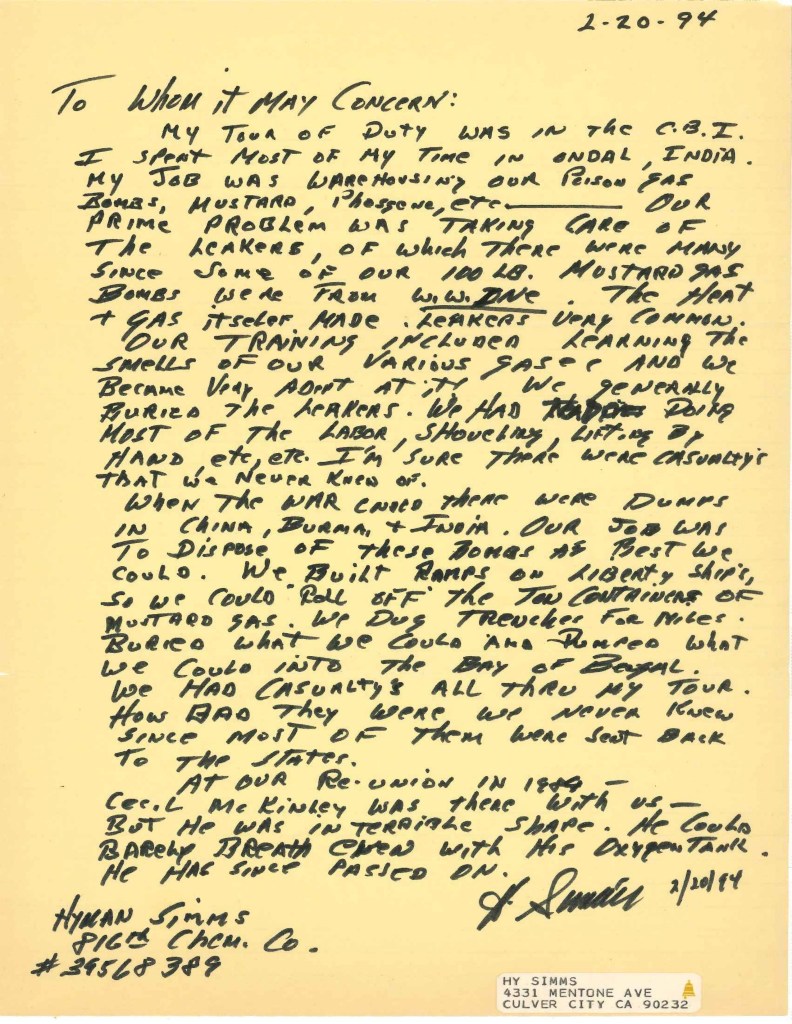 2-20-94
To Whom it May Concern:
My Tour of Duty was in the C.B.I.
I spent most of my time in Ondal, India.
My job was warehousing our poison gas
bombs, mustard, phosgene, etc. — Our
prime problem was taking care of
the leakers, of which there were many
since some of our 100 lb. mustard gas
bombs were from W.W. One. The heat
+ gas itself made leakers very common.
Our training included learning the
smells of our various gases and we
became very adept at it! We generally
buried the leakers. We had doing
most of the labor, shoveling, lifting by
hand, etc, etc. I'm sure there were casualty's
that we never knew of.
When the war ended there were dumps
in China, Burma, + India. Our job was
to dispose of these bombs as best we
could. We built ramps on Liberty ship's,
so we could roll off the ton containers of
mustard gas. We dug trenches for miles.
Buried what we could and dumped what
we could into the Bay of Bengal.
We had casualty's all thru my tour.
How bad they were we never knew
since most of them were sent back
to the States.
At our re-union in 1989 —
Cecil McKinley was there with us, —
but he was in terrible shape. He could
barely breath even with his oxygen tank.
He has since passed on.
H Simms 2/20/94
Hyman Simms
816th Chem. Co.
# 39568389
HY SIMMS
4331 MENTONE AVE
CULVER CITY CA 90232